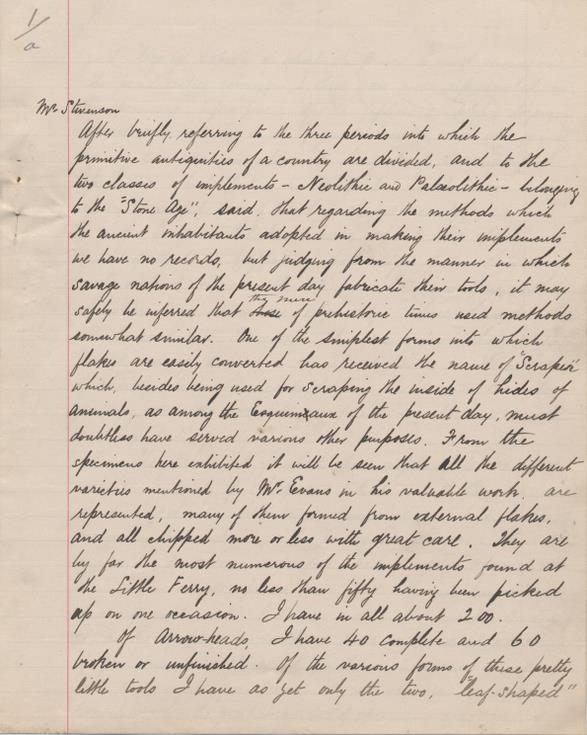 1/a
Mr Stevenson
After briefly referring to the three periods into which the
primitive antiquities of a country are divided, and to the
two classes of implements – Neolithic and Palæolithic – belonging
to the "Stone Age", said, that regarding the methods which
the ancient inhabitants adopted in making their implements
we have no records, but judging from the manner in which
savage nations of the present day fabricate their tools, it may
the men
safely be inferred that those of prehistoric times used methods
somewhat similar. One of the simplest forms into which
flakes are easily converted has received the name of "Scraper"
which, besides being used for scraping the inside of hides of
animals, as among the Esquimaux of the present day, must
doubtless have served various other purposes. From the
specimens here exhibited it will be seen that all the different
varieties mentioned by Mr. Evans in his valuable work, are
represented, many of them formed from external flakes,
and all chipped more or less with great care. They are
by far the most numerous of the implements found at
the Little Ferry, no less than fifty having been picked
up on one occasion. I have in all about 200.
Of Arrow-heads, I have 40 complete and 60
broken or unfinished. Of the various forms of these pretty
little tools I have as yet only the two, "leaf-shaped"